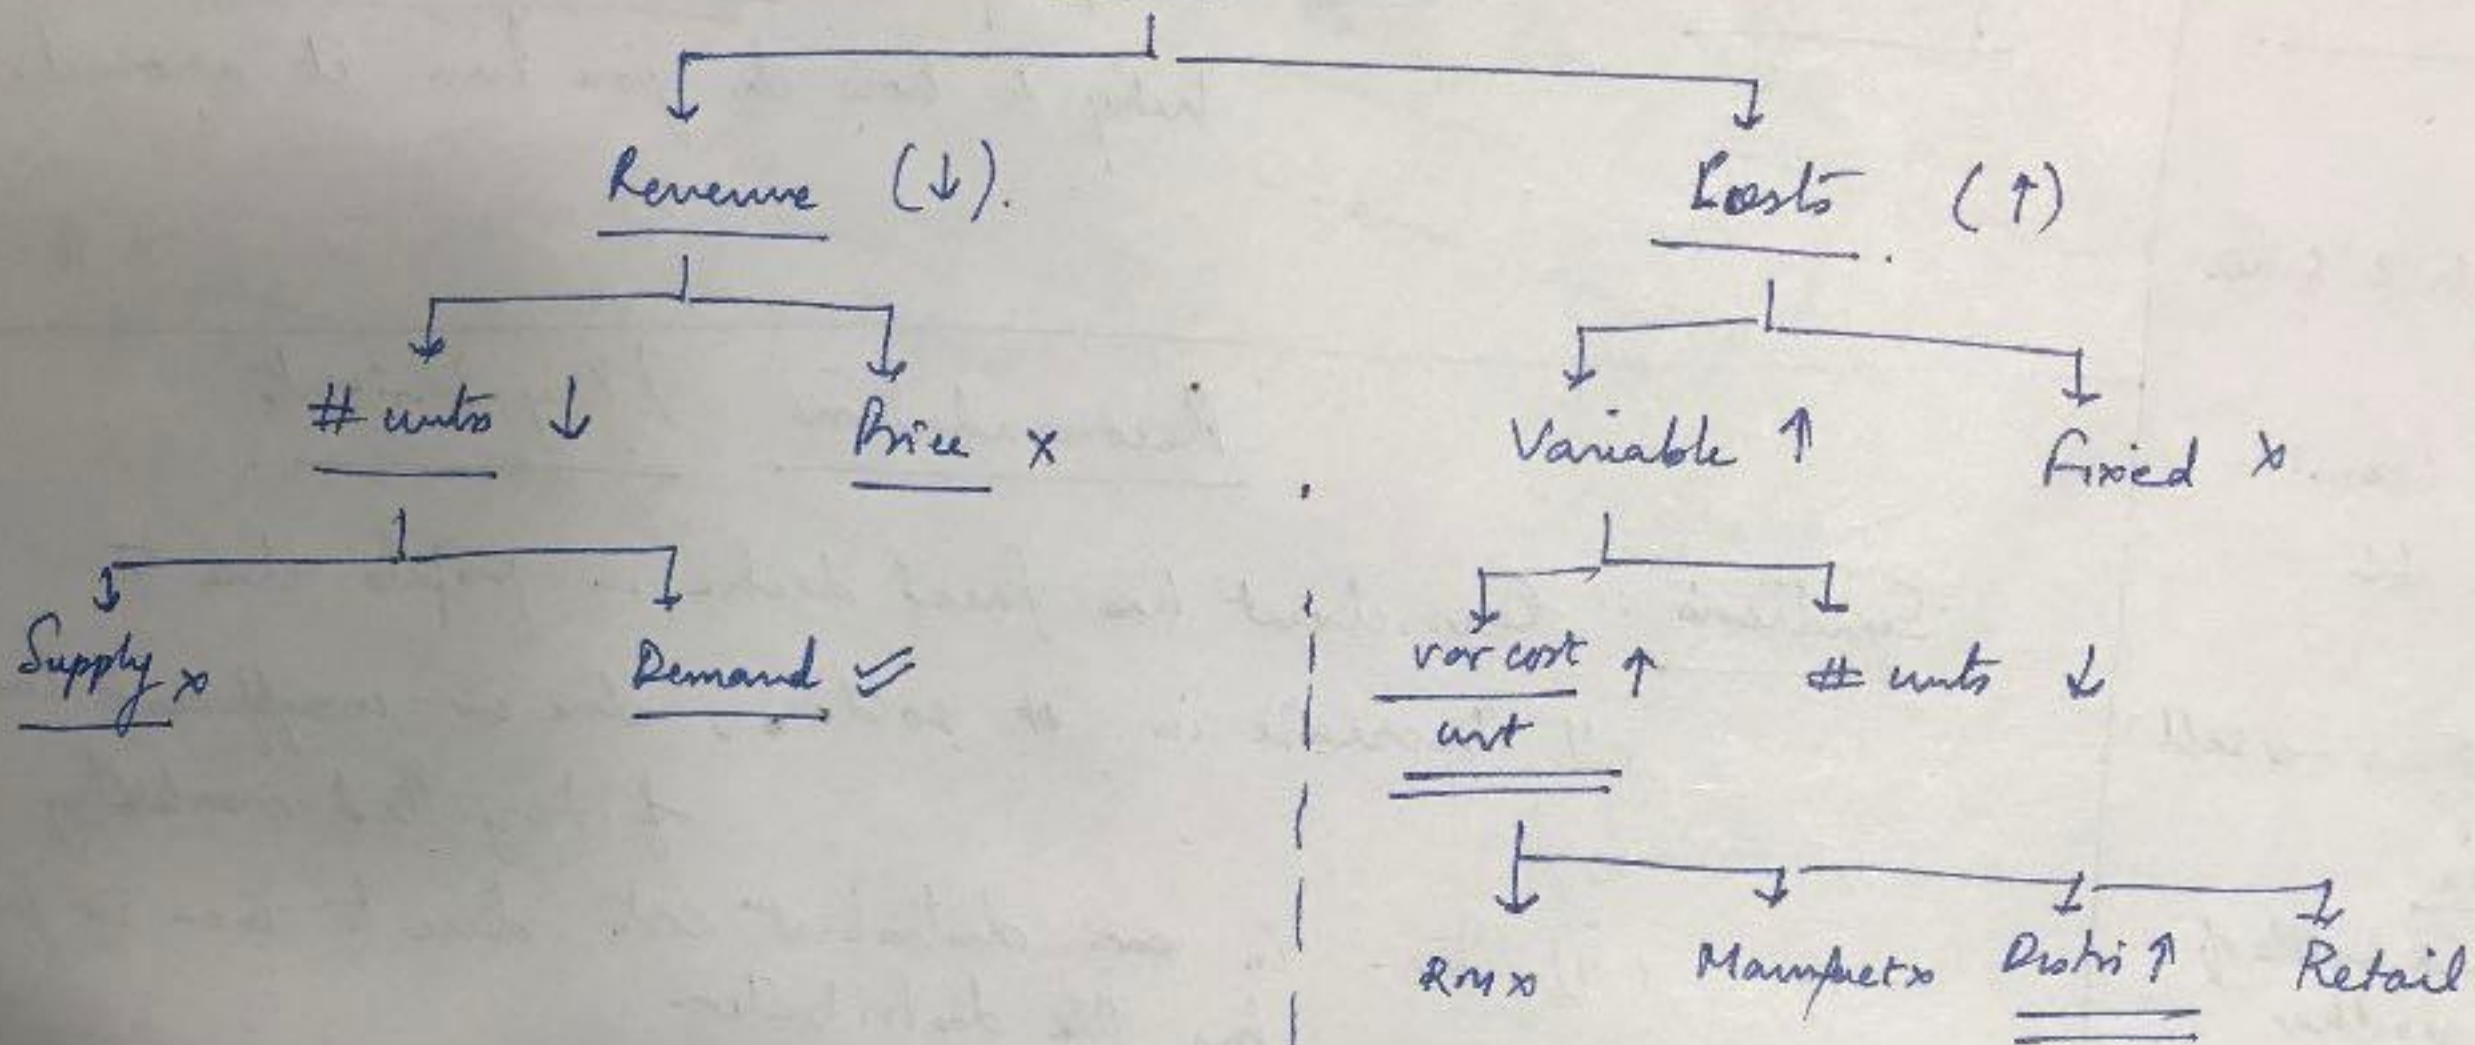 Revenue (↓). Costs (↑)
# units ↓ Price x Variable ↑ Fixed x
Supply x Demand ✓ var cost ↑ # units ↓
unit
RM x Manufact x Distri ↑ Retail